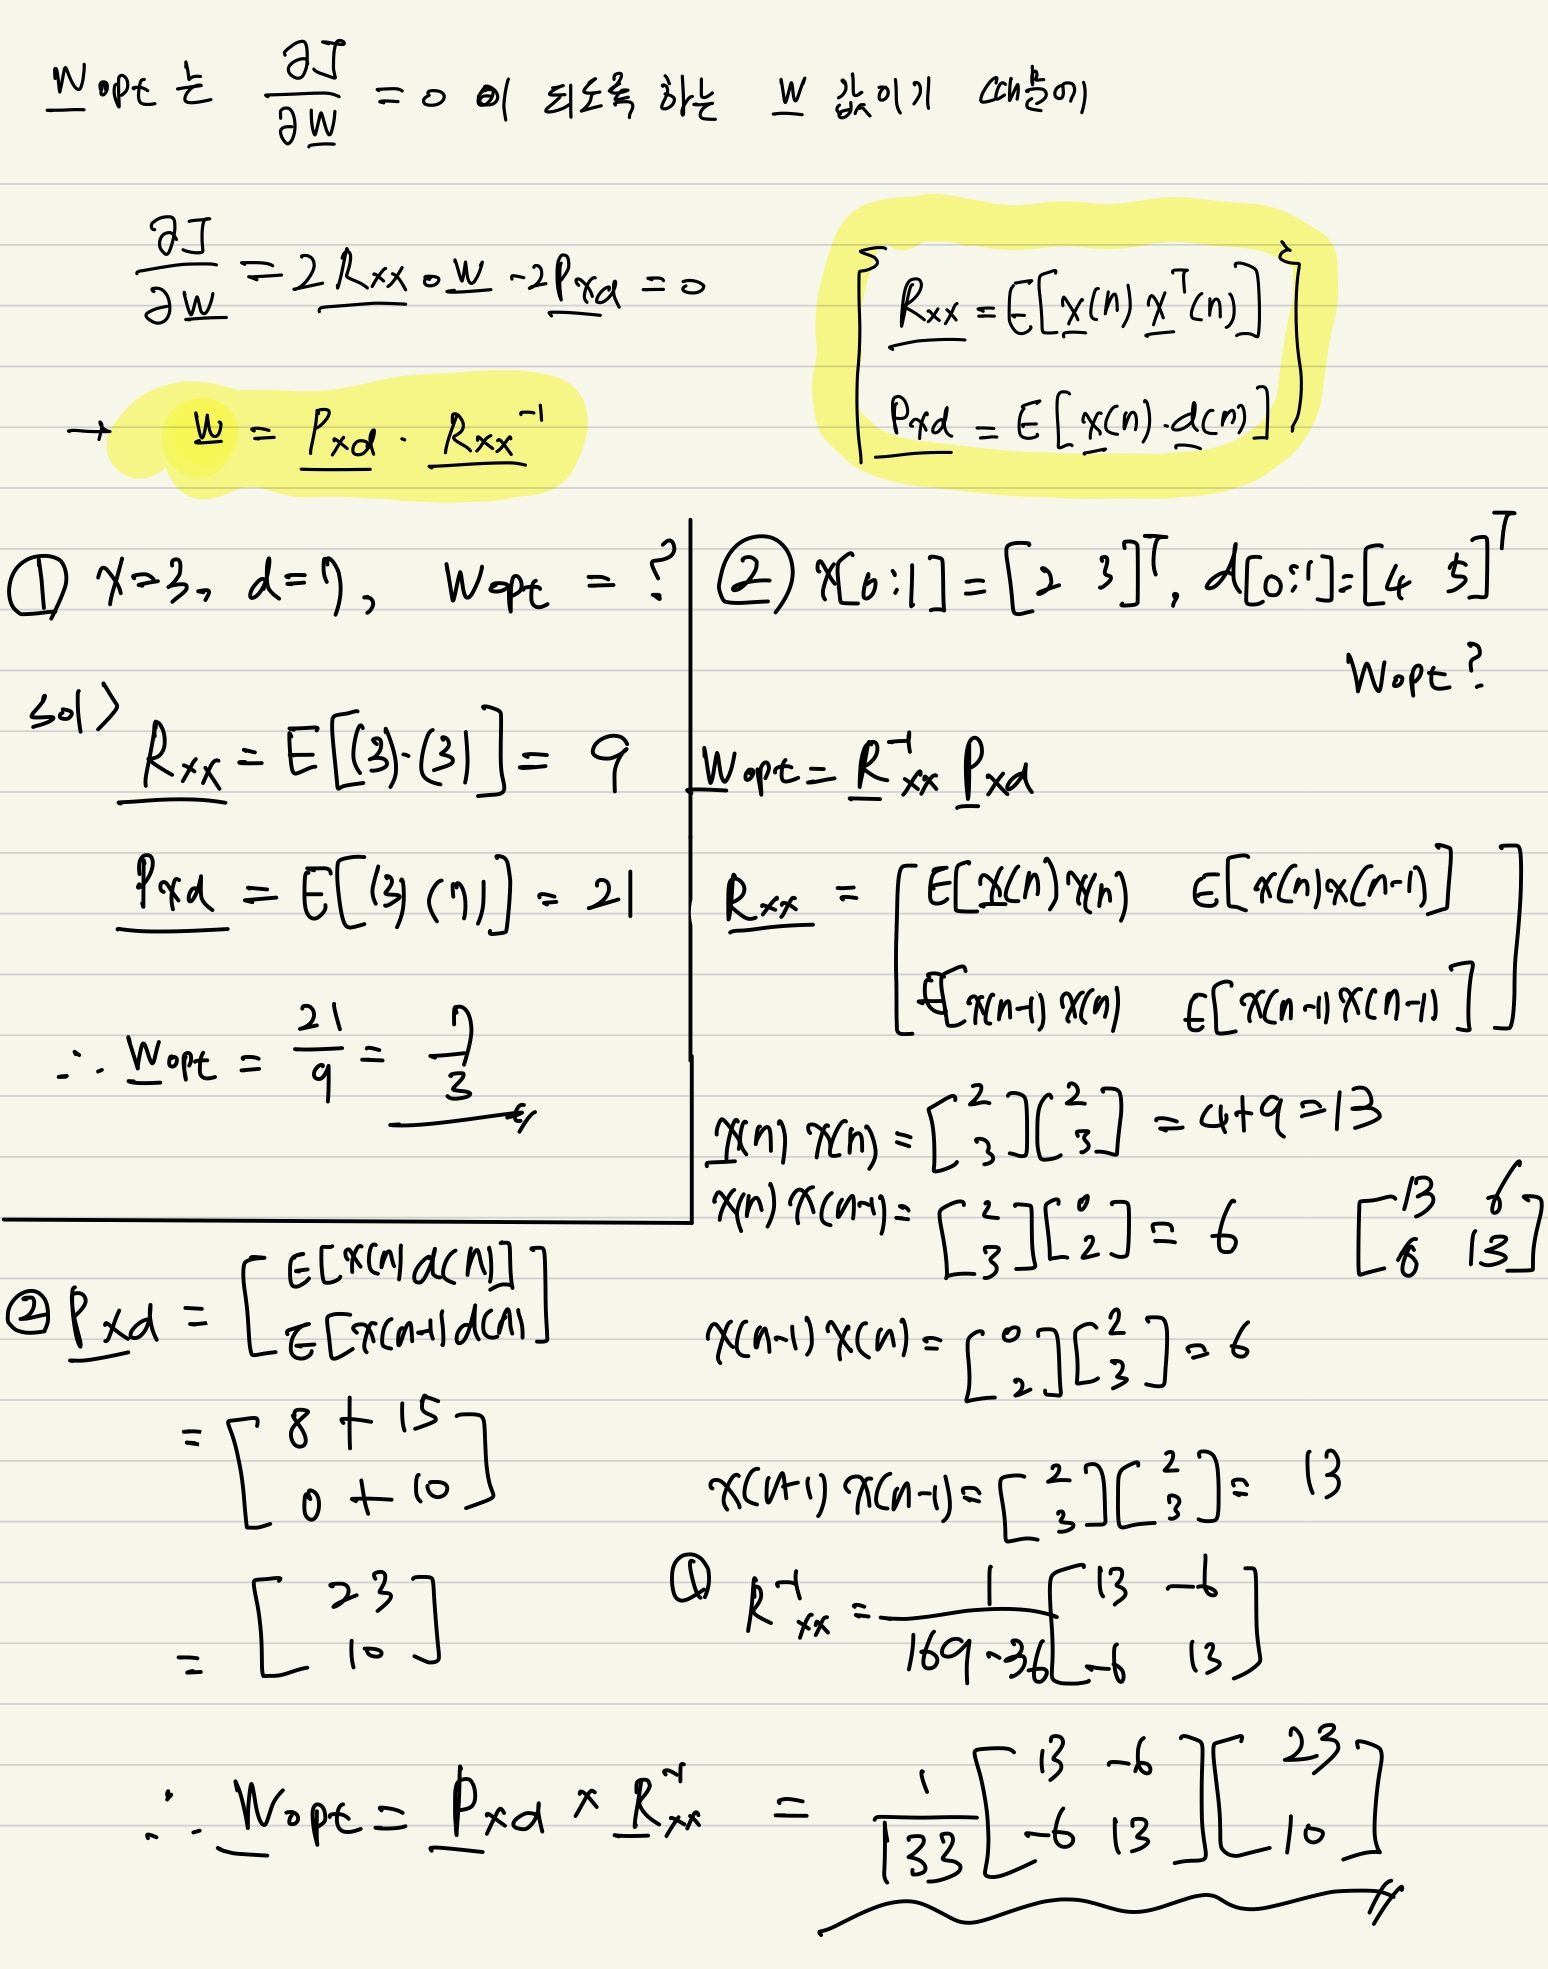 W opt 는 ∂J/∂W = 0 이 되도록 하는 W 값이기 때문에
∂J/∂W = 2 Rxx · W - 2 Pxd = 0
{ Rxx = E[x(n) x^T(n)]
Pxd = E[x(n)·d(n)] }
→ W = Pxd · Rxx^-1
① x=3, d=7, Wopt = ?
sol> Rxx = E[(3)·(3)] = 9
Pxd = E[(3)(7)] = 21
∴ Wopt = 21/9 = 7/3
② x[0:1] = [2 3]^T, d[0:1]=[4 5]^T
Wopt?
Wopt = R^-1 xx Pxd
Rxx = [ E[x(n)x(n) E[x(n)x(n-1)]
E[x(n-1)x(n) E[x(n-1)x(n-1)] ]
x(n) x(n) = [2 3][2 3] = 4+9=13
x(n) x(n-1) = [2 3][0 2] = 6 [13 6
6 13]
x(n-1) x(n) = [0 2][2 3] = 6
x(n-1) x(n-1) = [2 3][2 3] = 13
① R^-1 xx = 1/169-36 [13 -6
-6 13]
② Pxd = [ E[x(n)d(n)]
E[x(n-1)d(n)] ]
= [ 8 + 15
0 + 10 ]
= [ 23
10 ]
∴ Wopt = Pxd × R^-1 xx = 1/133 [13 -6
-6 13] [23
10]